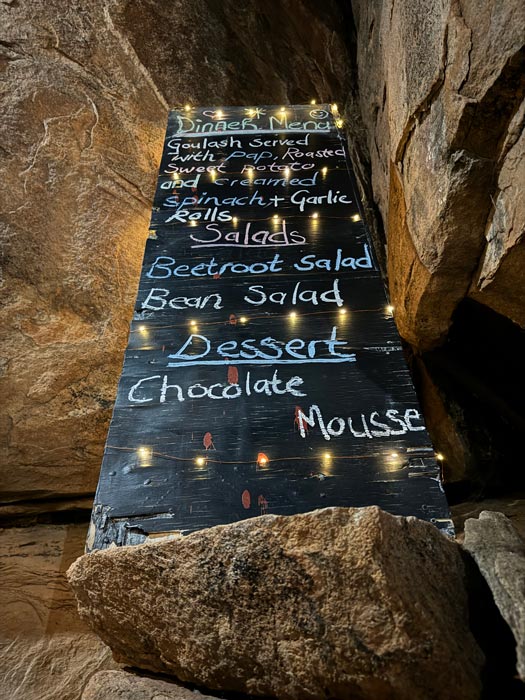 Dinner Menu
Goulash Served
with Pap, Roasted
Sweet potato
and creamed
spinach + Garlic
Rolls
Salads
Beetroot Salad
Bean Salad
Dessert
Chocolate
Mousse